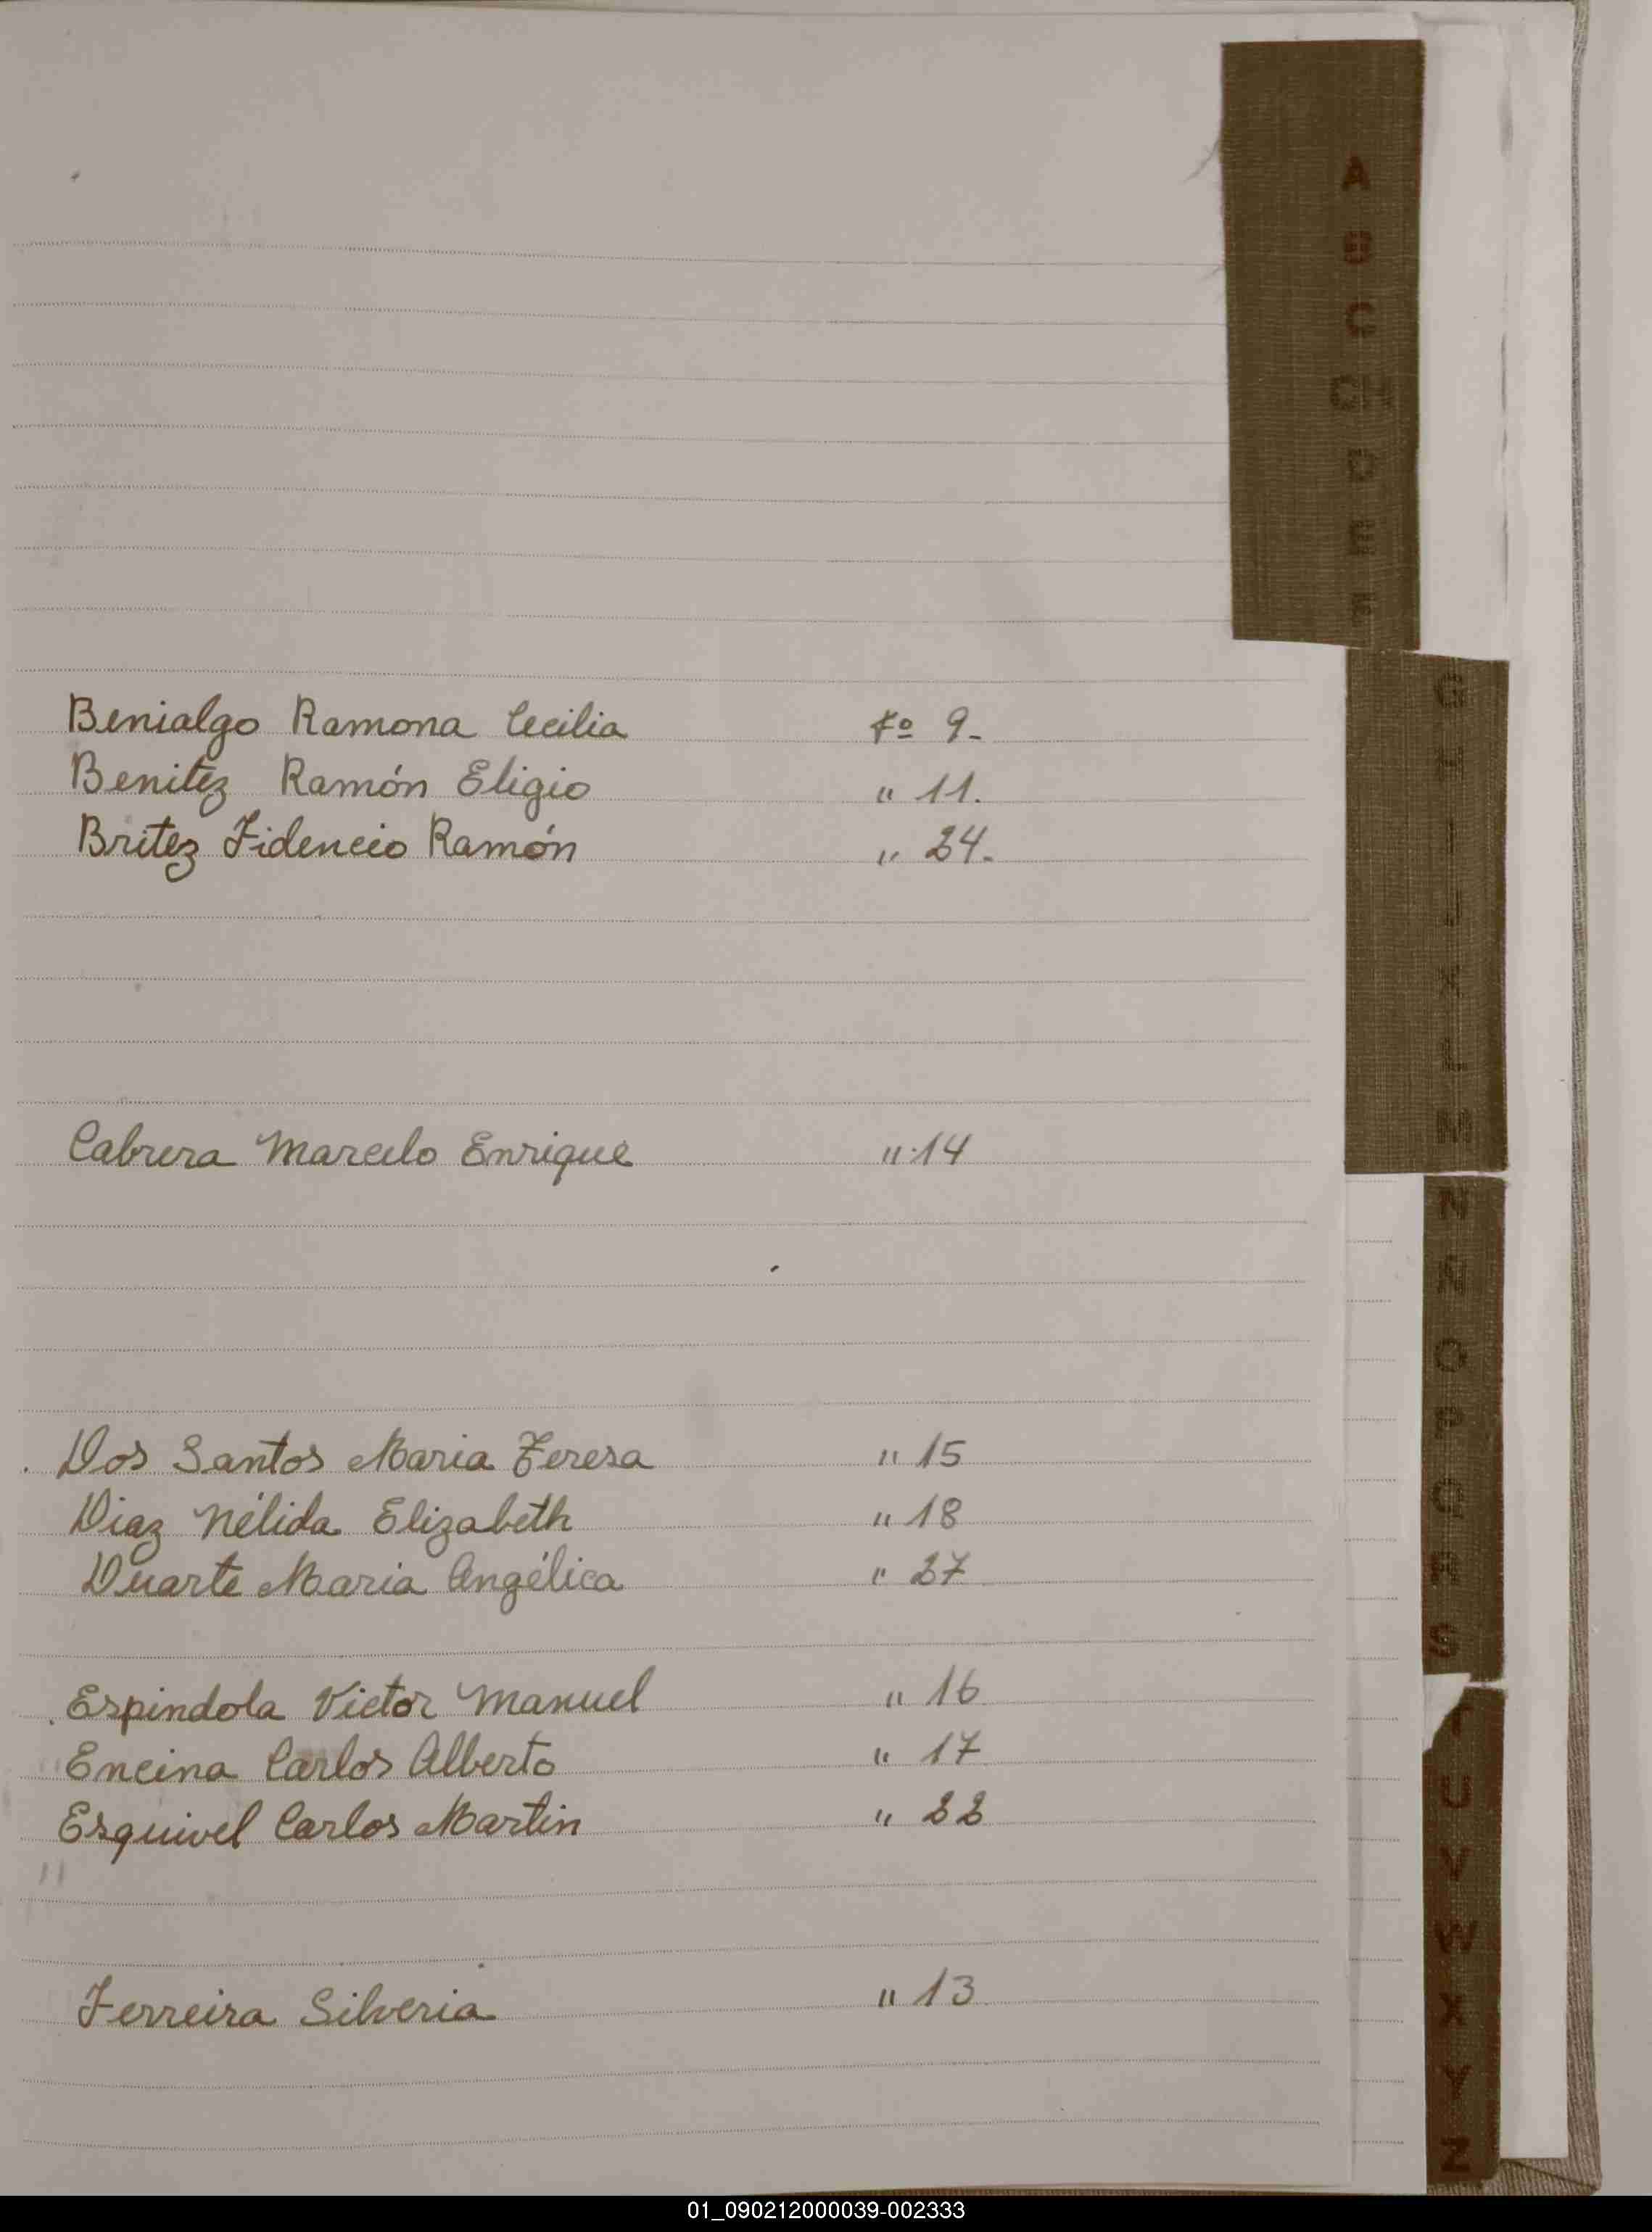 A
B
C
CH
D
E
F
Benialgo Ramona Cecilia Fº 9.-
Benitez Ramón Eligio " 11.
Britez Fidencio Ramón " 24.-
G
H
I
J
K
L
M
Cabrera Marcelo Enrique " 14
N
Ñ
O
P
Q
R
S
Dos Santos Maria Teresa " 15
Diaz Nélida Elizabeth " 18
Duarte Maria Angélica " 27
Espindola Victor Manuel " 16
Encina Carlos Alberto " 17
Esquivel Carlos Martin " 22
T
U
V
W
X
Y
Z
Ferreira Silveria " 13
01_090212000039-002333